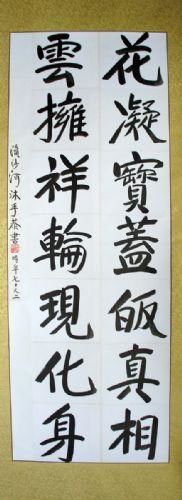 花凝寶蓋皈真相
雲擁祥輪現化身
沐手恭書